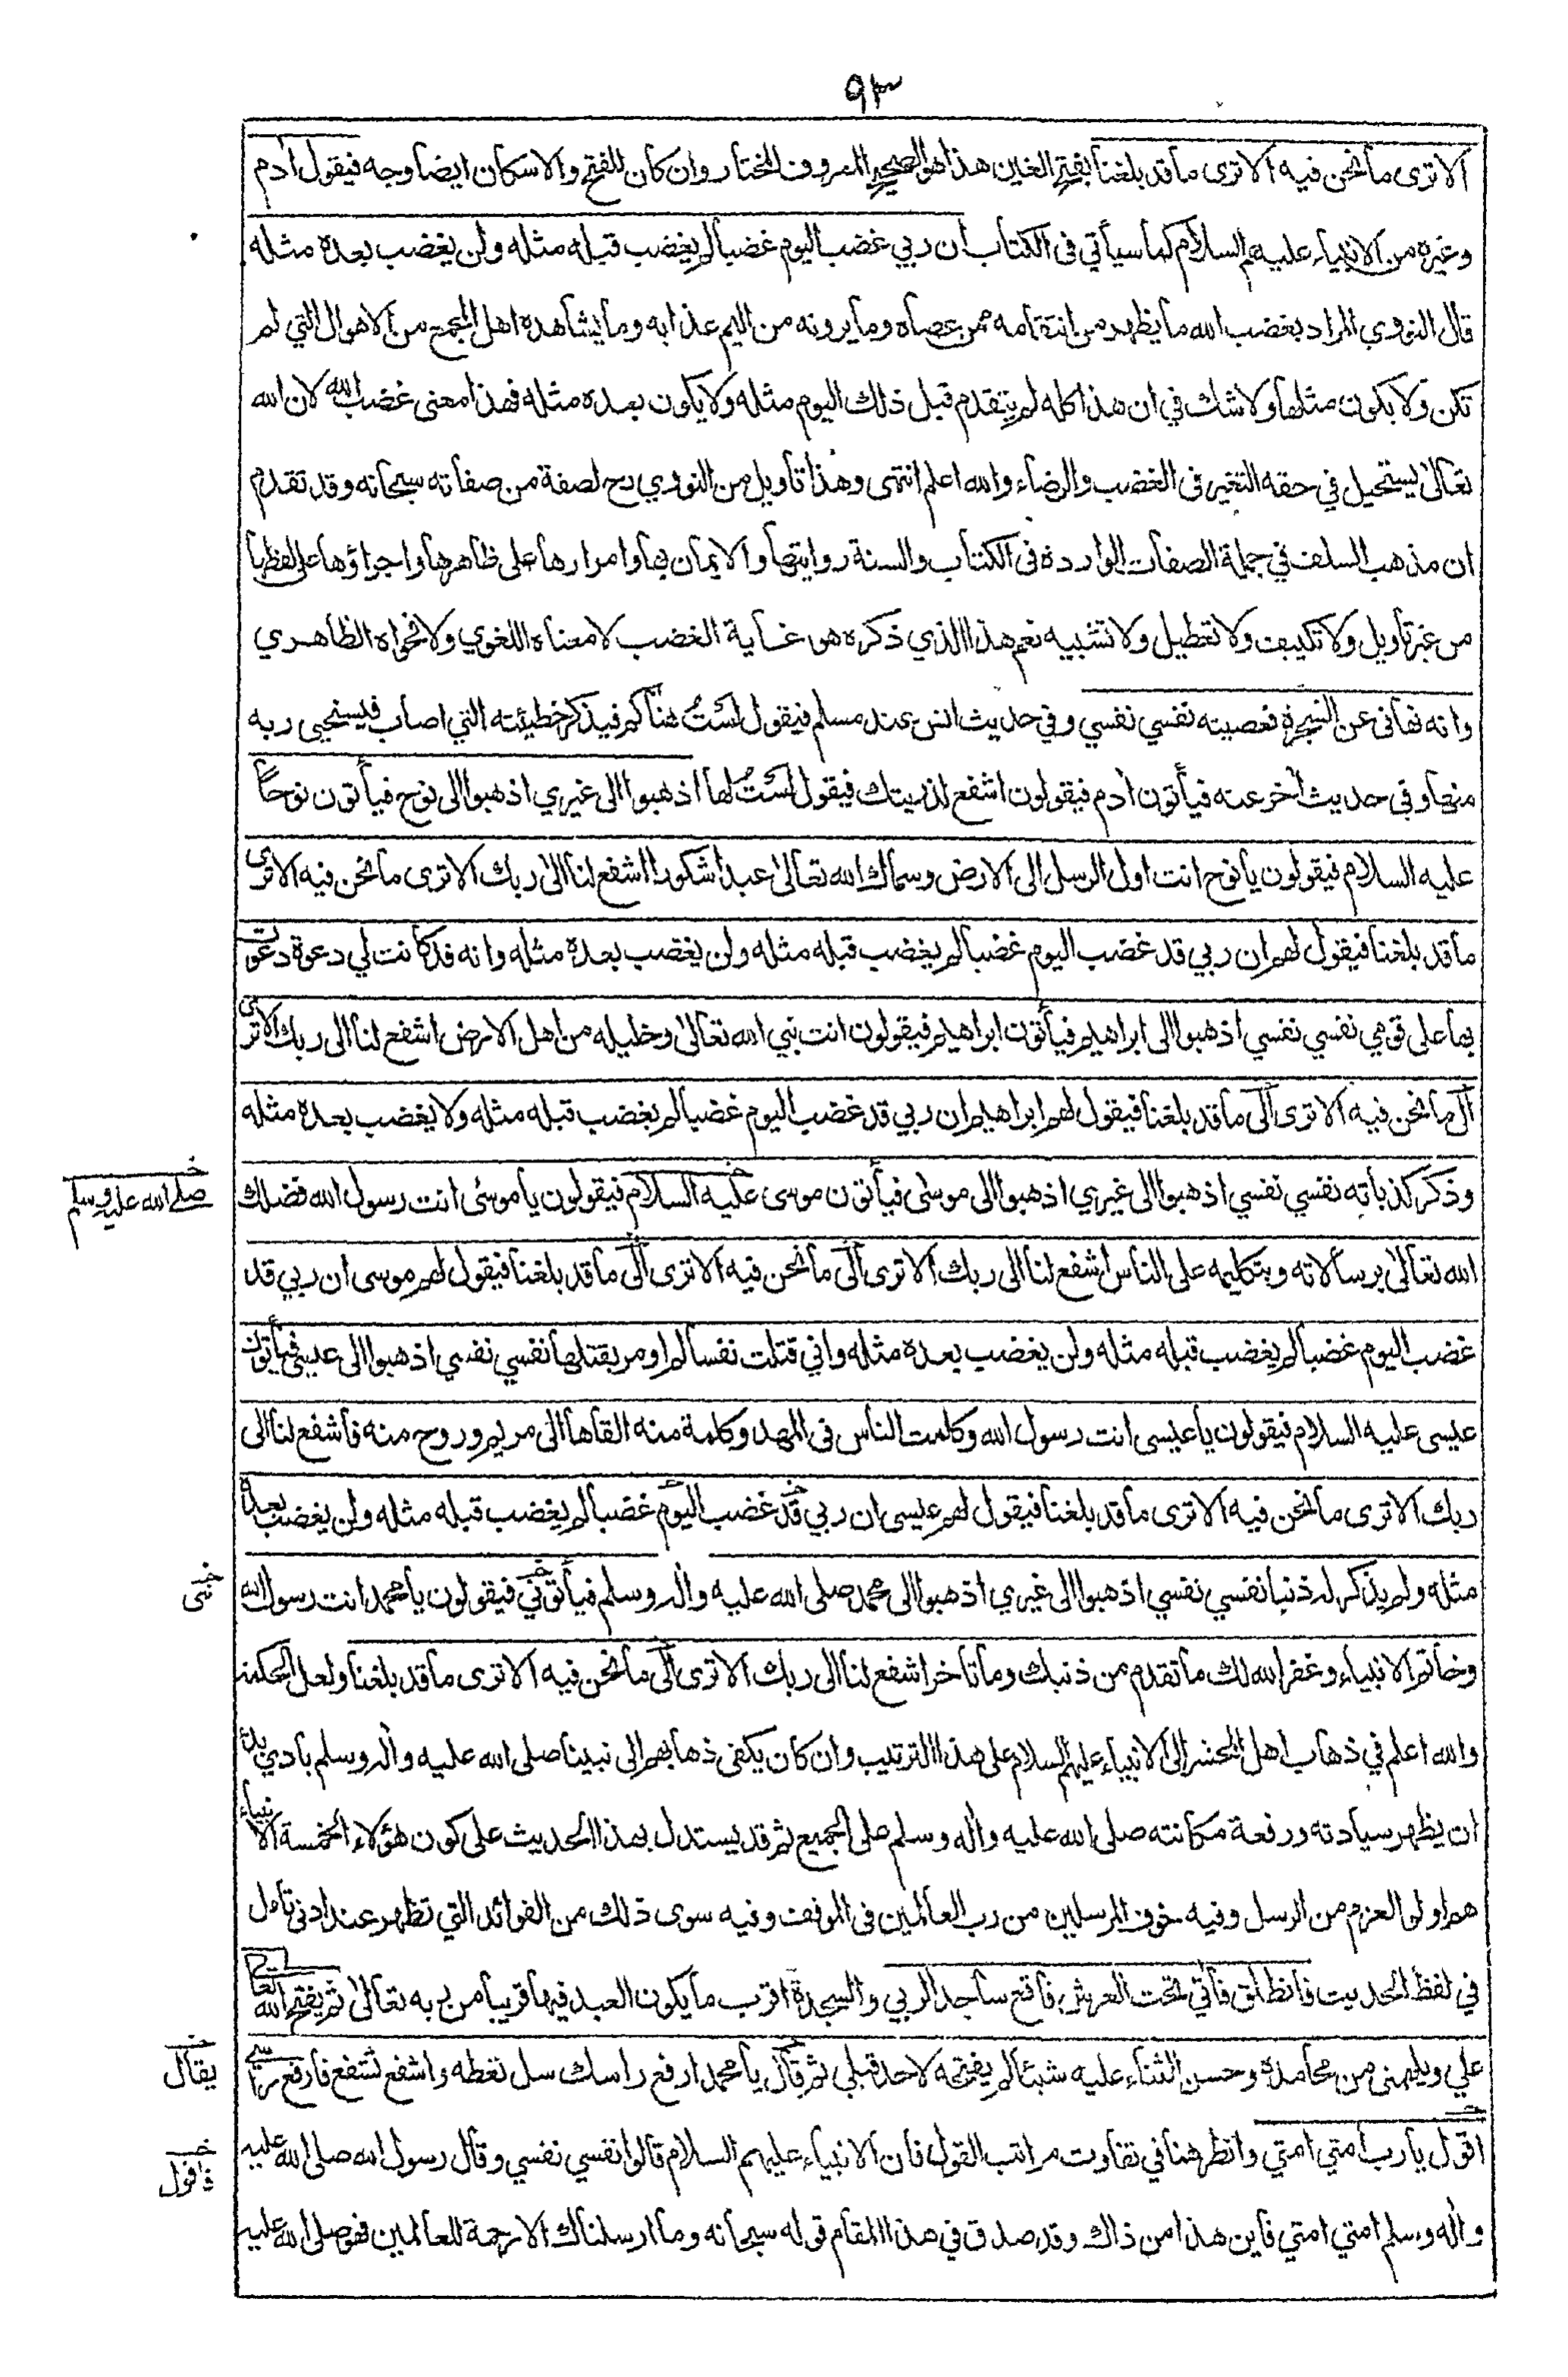 ٩٣
الا ترى ما نحن فيه الا ترى ما قد بلغنا بفتح الغين هذا هو الصحيح المعروف المختار وان كان للفتح والاسكان ايضا وجه فيقول آدم
وغيره من الانبياء عليهم السلام كما سيأتي في الكتاب ان ربي غضب اليوم غضبا لم يغضب قبله مثله ولن يغضب بعده مثله
قال النووي المراد بغضب الله ما يظهر من انتقامه ممن عصاه وما يرونه من اليم عذابه وما يشاهده اهل المجمع من الاهوال التي لم
تكن ولا يكون مثلها ولا شك في ان هذا كله لم يتقدم قبل ذلك اليوم مثله ولا يكون بعده مثله فهذا معنى غضب الله لان الله
تعالى يستحيل في حقه التغير في الغضب والرضاء والله اعلم انتهى وهذا تأويل من النووي رح لصفة من صفاته سبحانه وقد تقدم
ان مذهب السلف في جملة الصفات الواردة في الكتاب والسنة روايتها والايمان بها وامرارها على ظاهرها واجراؤها على لفظها
من غير تأويل ولا تكييف ولا تعطيل ولا تشبيه نعم هذا الذي ذكره هو غاية الغضب لا معناه اللغوي ولا فحواه الظاهري
وانه نهاني عن الشجرة فعصيته نفسي نفسي وفي حديث انس عند مسلم فيقول لست هناكم فيذكر خطيئته التي اصاب فيستحيي ربه
منها وفي حديث آخر عنه فيأتون آدم فيقولون اشفع لذريتك فيقول لست لها اذهبوا الى غيري اذهبوا الى نوح فيأتون نوحا
عليه السلام فيقولون يا نوح انت اول الرسل الى الارض وسماك الله تعالى عبدا شكورا اشفع لنا الى ربك الا ترى ما نحن فيه الا ترى
ما قد بلغنا فيقول لهم ان ربي قد غضب اليوم غضبا لم يغضب قبله مثله ولن يغضب بعده مثله وانه قد كانت لي دعوة دعوت
بها على قومي نفسي نفسي اذهبوا الى ابراهيم فيأتون ابراهيم فيقولون انت نبي الله تعالى وخليله من اهل الارض اشفع لنا الى ربك الا ترى
الى ما نحن فيه الا ترى الى ما قد بلغنا فيقول لهم ابراهيم ان ربي قد غضب اليوم غضبا لم يغضب قبله مثله ولا يغضب بعده مثله
وذكر كذباته نفسي نفسي اذهبوا الى غيري اذهبوا الى موسى فيأتون موسى عليه السلام فيقولون يا موسى انت رسول الله فضلك
خـ صلى الله عليه وسلم
الله تعالى برسالاته وبتكليمه على الناس اشفع لنا الى ربك الا ترى الى ما نحن فيه الا ترى الى ما قد بلغنا فيقول لهم موسى ان ربي قد
غضب اليوم غضبا لم يغضب قبله مثله ولن يغضب بعده مثله واني قتلت نفسا لم اومر بقتلها نفسي نفسي اذهبوا الى عيسى فيأتون
عيسى عليه السلام فيقولون يا عيسى انت رسول الله وكلمت الناس في المهد وكلمة منه القاها الى مريم وروح منه فاشفع لنا الى
ربك الا ترى ما نحن فيه الا ترى ما قد بلغنا فيقول لهم عيسى ان ربي قد غضب اليوم غضبا لم يغضب قبله مثله ولن يغضب بعده
مثله ولم يذكر له ذنبا نفسي نفسي اذهبوا الى غيري اذهبوا الى محمد صلى الله عليه وآله وسلم فيأتوني فيقولون يا محمد انت رسول الله
وخاتم الانبياء وغفر الله لك ما تقدم من ذنبك وما تأخر اشفع لنا الى ربك الا ترى الى ما نحن فيه الا ترى ما قد بلغنا ولعل الحكمة
والله اعلم في ذهاب اهل المحشر الى الانبياء عليهم السلام على هذا الترتيب وان كان يكفي ذهابهم الى نبينا صلى الله عليه وآله وسلم بادي بدء
ان يظهر سيادته ورفعة مكانته صلى الله عليه وآله وسلم على الجميع ثم قد يستدل بهذا الحديث على كون هؤلاء الخمسة الانبياء
هم اولو العزم من الرسل وفيه خوف المرسلين من رب العالمين في الموقف وفيه سوى ذلك من الفوائد التي تظهر عند ادنى تأمل
في لفظ الحديث فانطلق فآتي تحت العرش فاقع ساجدا لربي والسجدة اقرب ما يكون العبد فيها قريبا من ربه تعالى ثم يفتح الله تعالى
علي ويلهمني من محامده وحسن الثناء عليه شيئا لم يفتحه لاحد قبلي ثم قال يا محمد ارفع راسك سل تعطه واشفع تشفع فارفع راسي
خـ يقال
اقول يا رب امتي امتي وانظر هنا في تفاوت مراتب القول فان الانبياء عليهم السلام قالوا نفسي نفسي وقال رسول الله صلى الله عليه
خـ فاقول
وآله وسلم امتي امتي فاين هذا من ذاك وقد صدق في هذا المقام قوله سبحانه وما ارسلناك الا رحمة للعالمين فهو صلى الله عليه